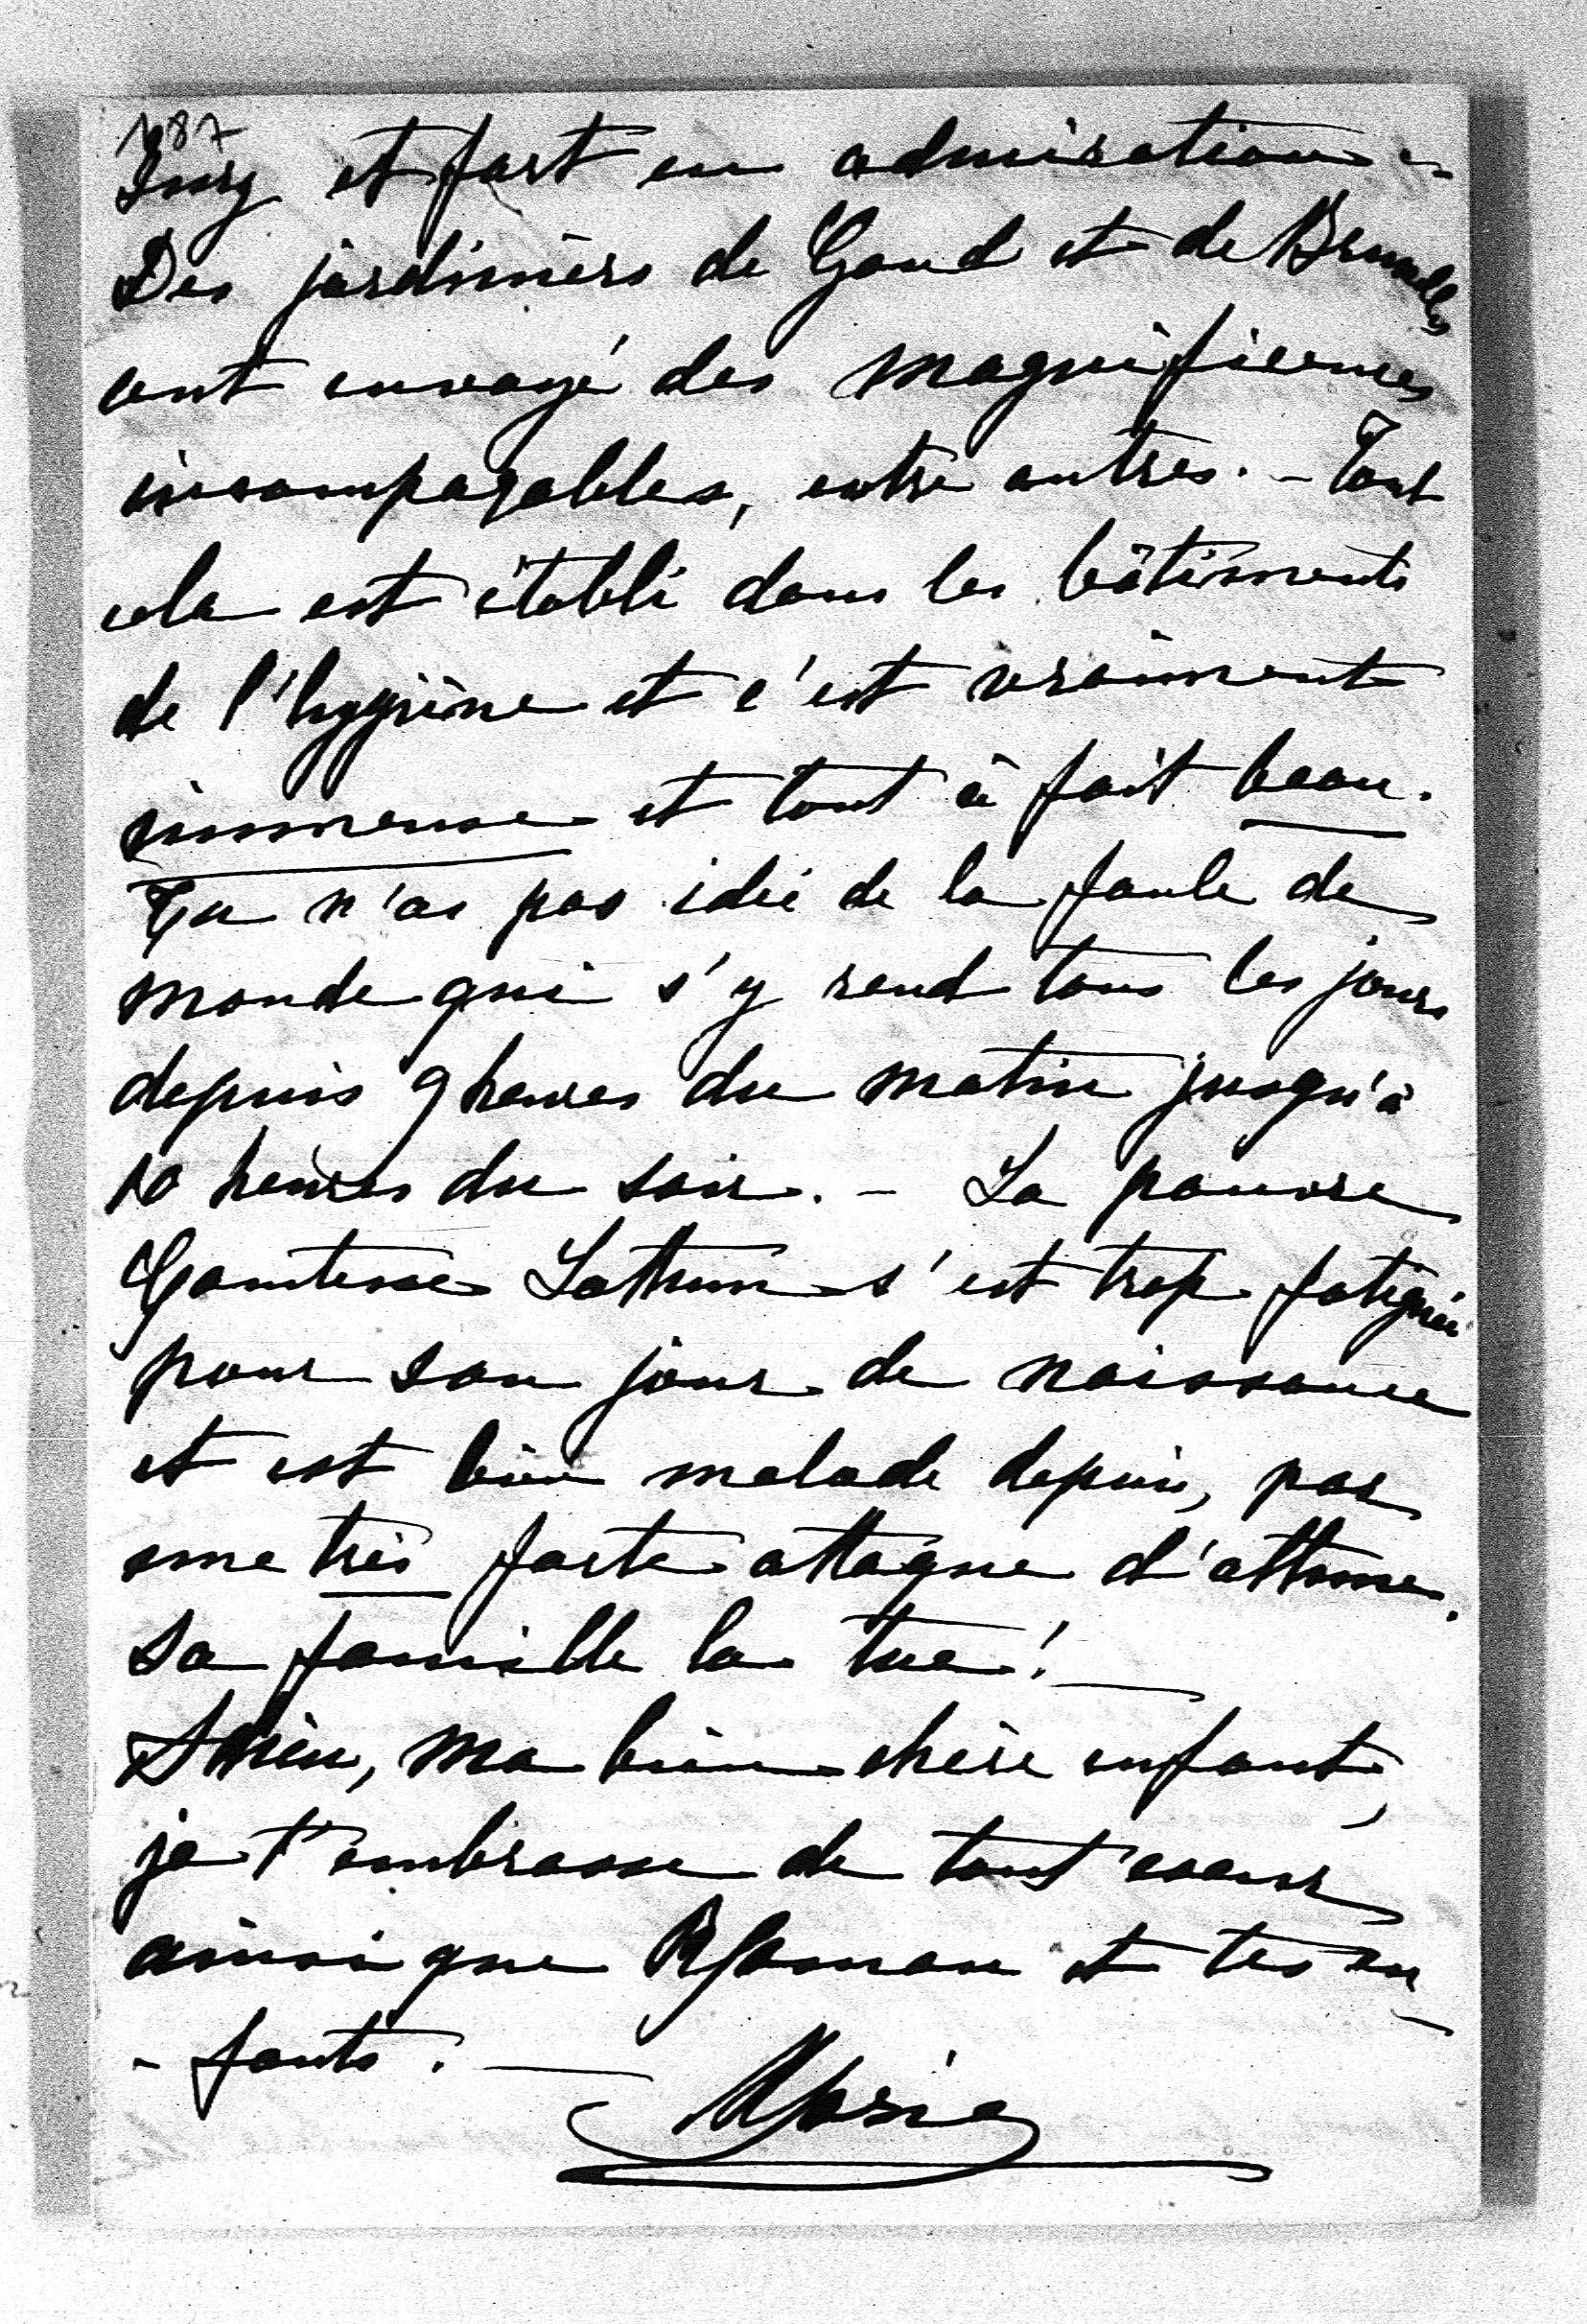 187
Jury et fort en admiration.-
Des jardiniers de Gand et de Bruxelles
ont envoyé des magnificences
incomparables, entre autres. - Tout
cela est établi dans les bâtiments
de l'hygiène et c'est vraiment
immense et tout à fait beau.
Tu n'as pas idée de la foule de
monde qui s'y rend tous les jours
depuis 9 heures du matin jusqu'à
10 heures du soir. - La pauvre
Comtesse s'est trop fatiguée
pour son jour de naissance
et est bien malade depuis, par
une très forte attaque d'
sa famille la tue! -
Adieu, ma bien chère enfant,
je t'embrasse de tout coeur
ainsi que et tes en-
- fants. -
Marie